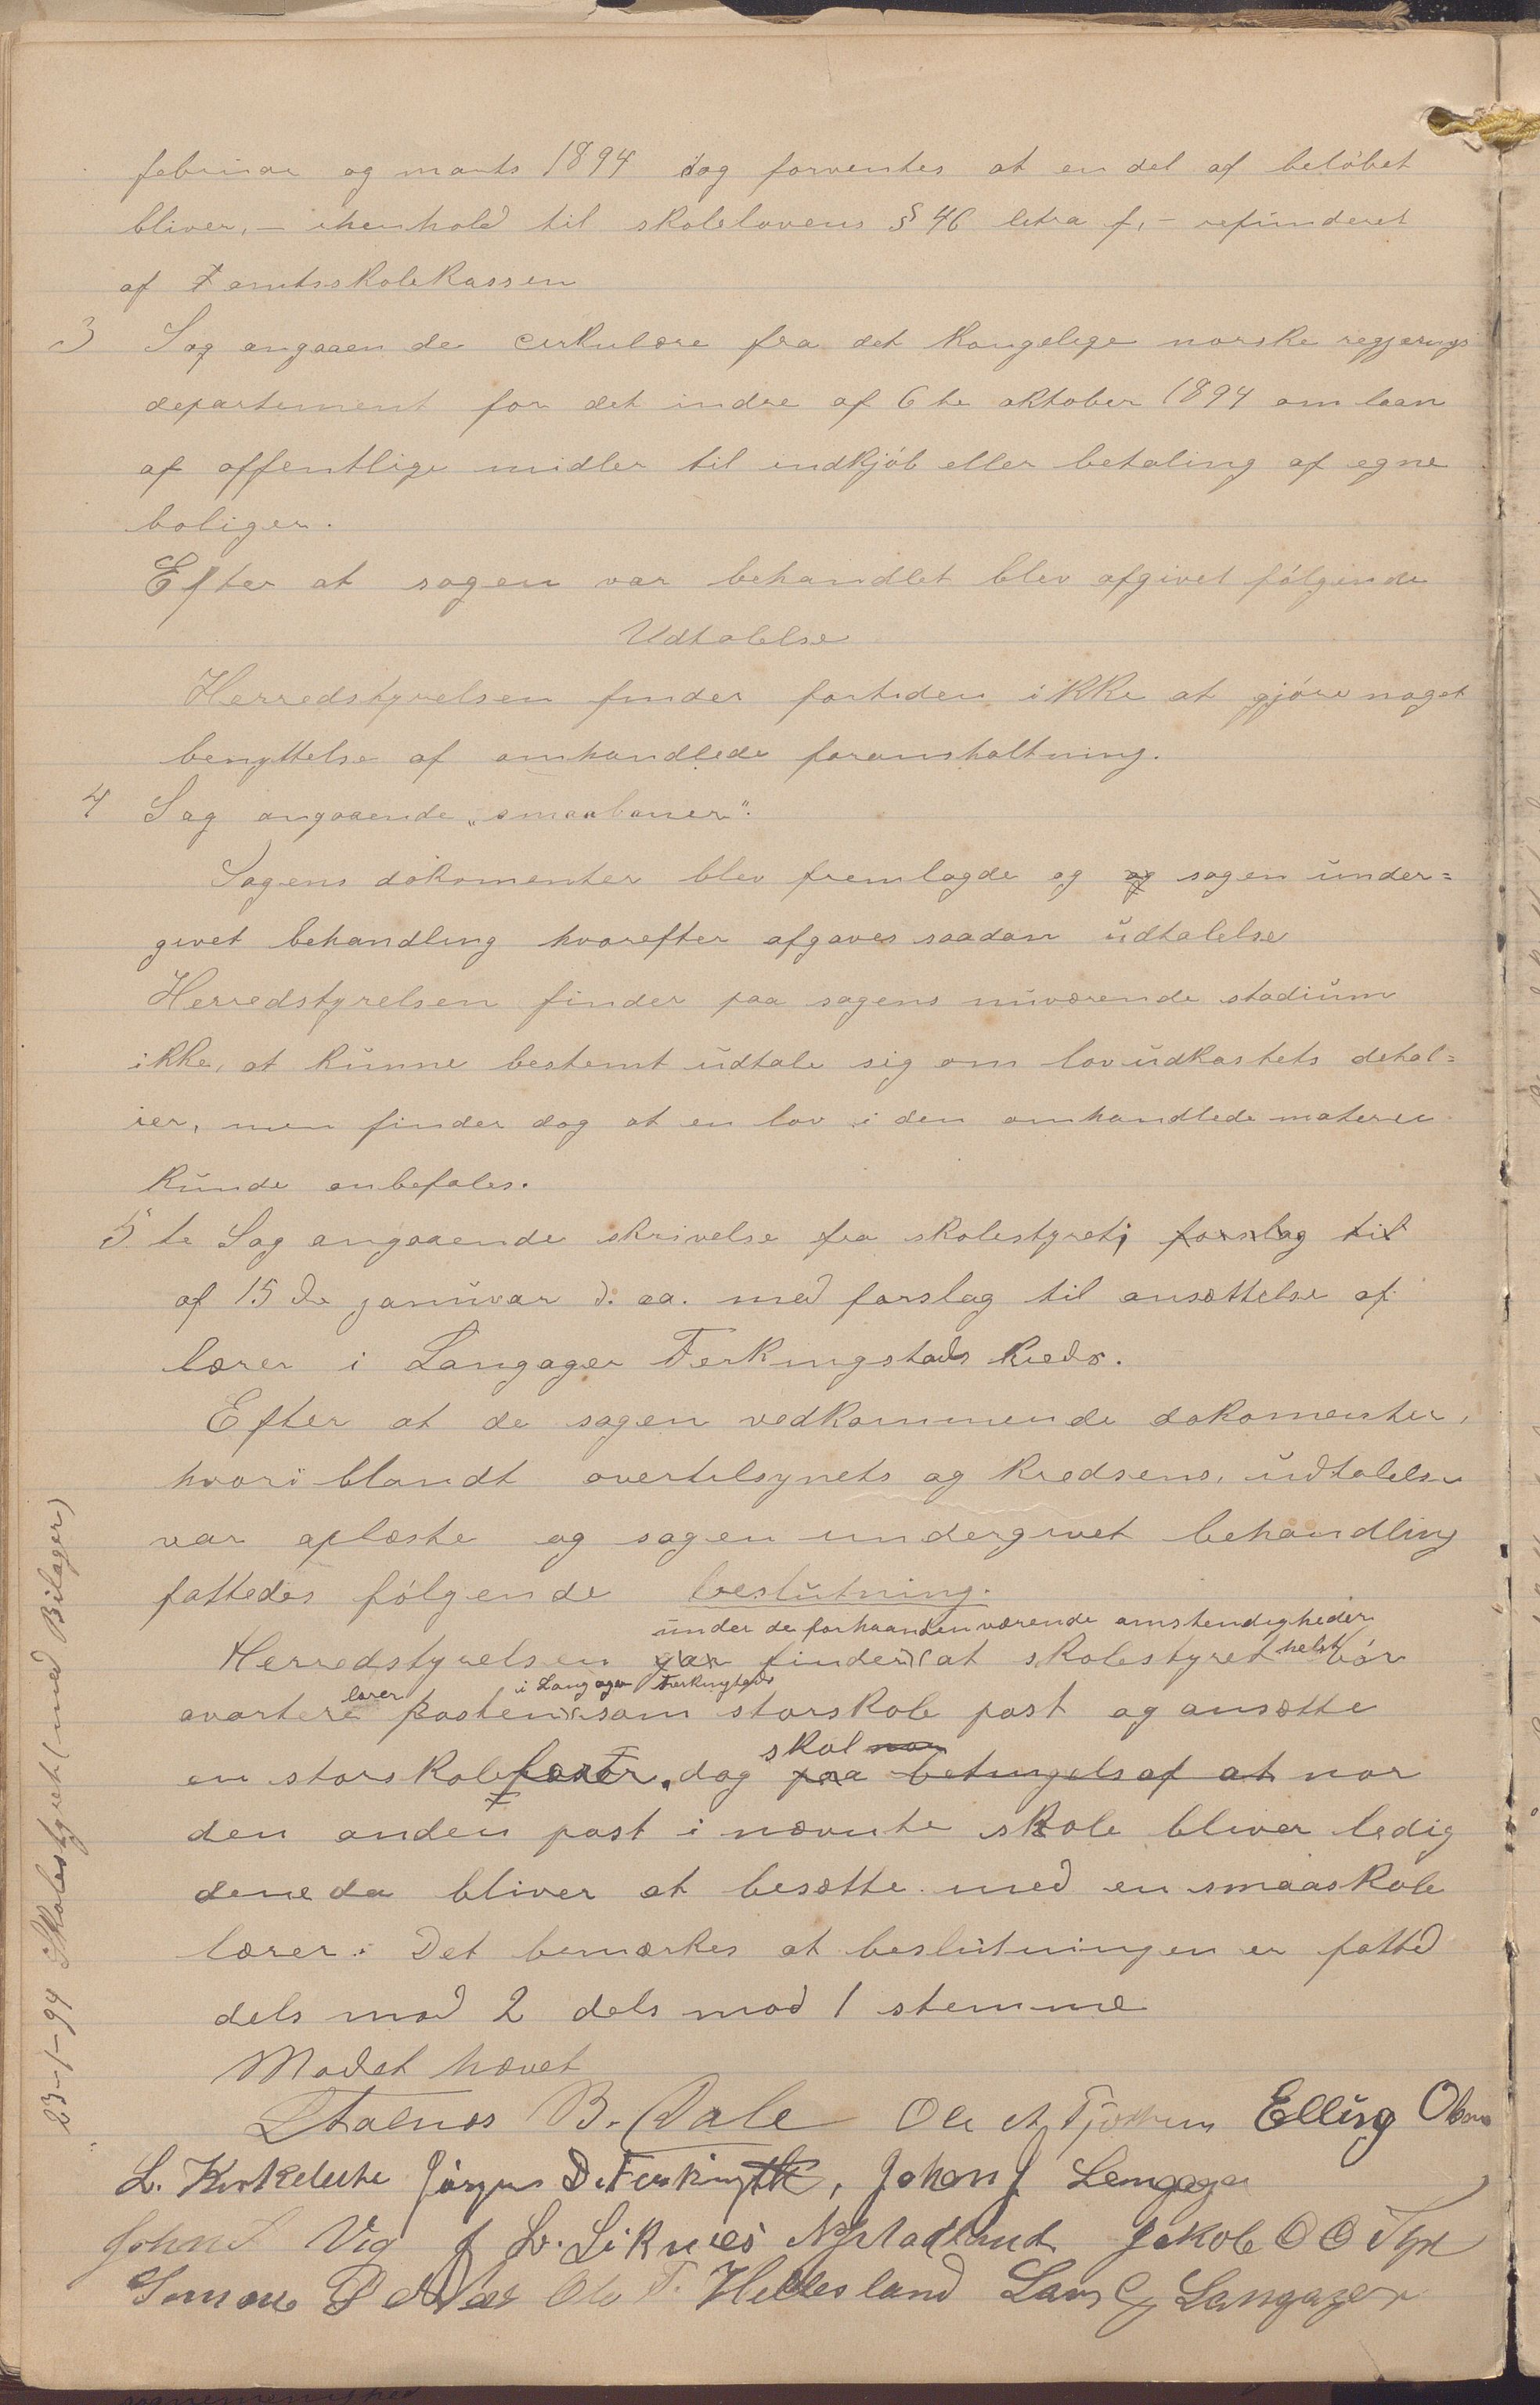 februar og marts 1894 dog forventes at en del af beløbet
bliver, - ihenhold til skolelovens § 46 letra f, - refunderet
af amtsskolekassen
3 Sag angaaende cirkulære fra det kongelige norske regjerings
departement for det indre af 6te oktober 1894 om laan
af offentlige midler til indkjøb eller betaling af egne
boliger.
Efter at sagen var behandlet blev afgivet følgende
Udtalelse
Herredstyrelsen finder fortiden ikke at gjøre noget
benyttelse af omhandlede foranstaltning.
4 Sag angaaende „smaabaner".
Sagens dokomenter blev fremlagde og og sagen under=
givet behandling hvorefter afgaves saadan udtalelse
Herredstyrelsen finder paa sagens nuværende stadium
ikke, at kunne bestemt udtale sig om lovudkastets detal=
ier, men finder dog at en lov i den omhandlede materie
kunde anbefales.
5te Sag angaaende skrivelse fra skolestyret, forslag til
af 15de januvar d. aa. med forslag til ansættelse af
lærer i Langager Ferkingstads kreds.
Efter at de sagen vedkommende dokomenter,
hvoriblandt overtilsynets og kredsens, udtalelse
var oplæste og sagen undergivet behandling
fattedes følgende beslutning.
under de forhaandenværende omstendigheder
Herredstyrelsen finder at skolestyret helst bør
lærer i Langager Ferkingstads
avertere posten som storskole post og ansætte
skal
en storskolelærer. dog paa betingelse af at nor
den anden post i nævnte skole bliver ledig
dene da bliver at besætte med en smaaskole
lærer. Det bemærkes at beslutningen er fatted
dels mod 2 dels mod 1 stemme
Mødet hævet
B. Dale Ole Elling
L. Jørgen D. Ferkingst, Johan J Langager
John Vig J L. Liknes Jakob O O
Simon Ole T. Hellesland Lars Langager
23-1-94 Skolestyret (med Bilager)